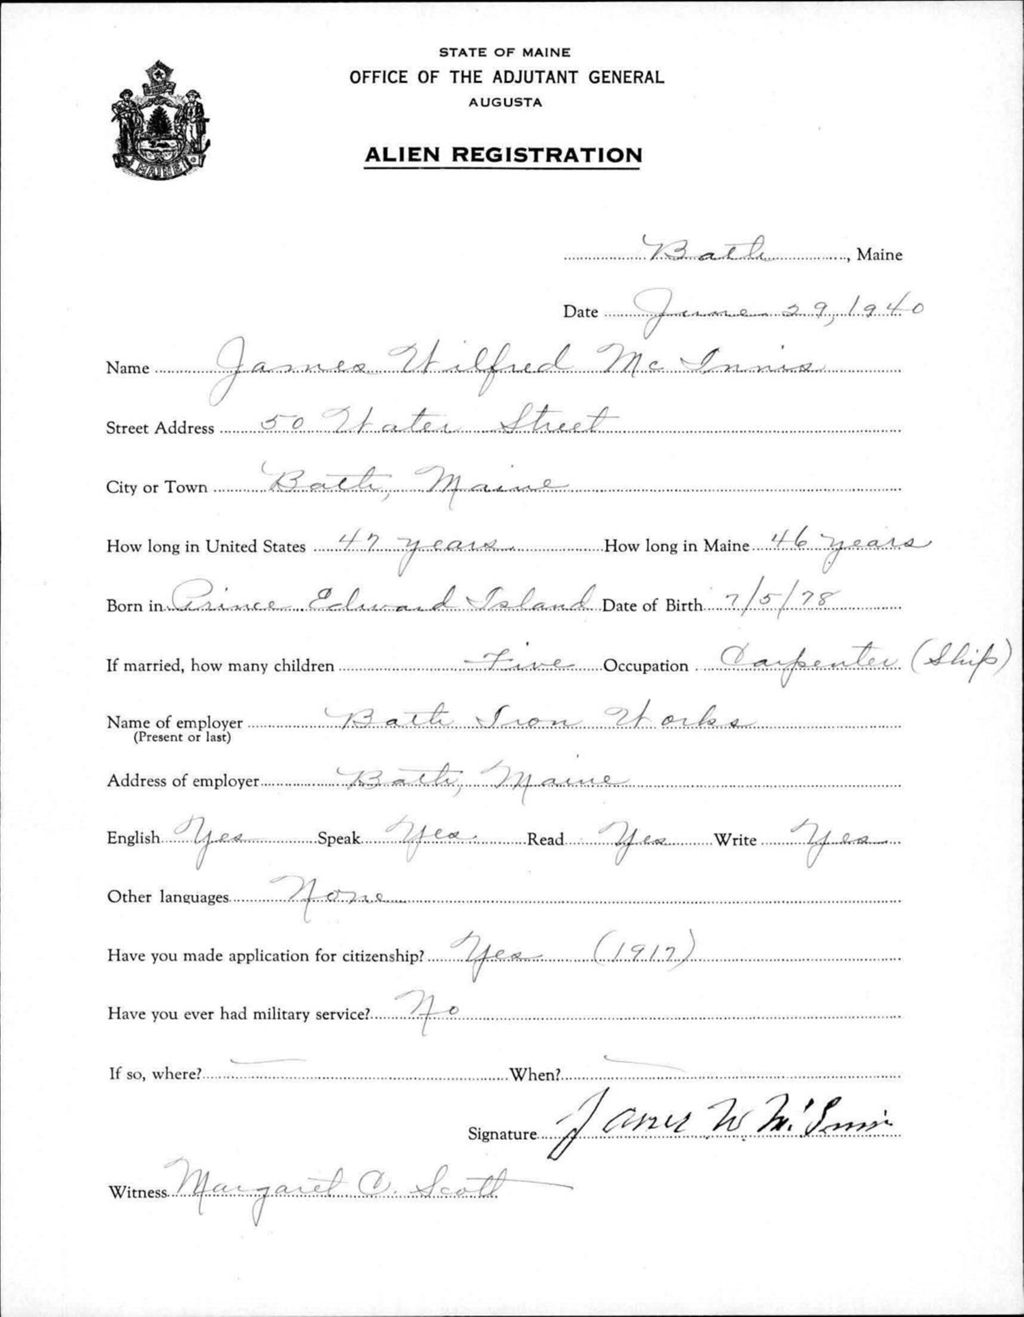 STATE OF MAINE
OFFICE OF THE ADJUTANT GENERAL
AUGUSTA
ALIEN REGISTRATION
MAINE
Bath, Maine
Date June 29, 1940
Name James Wilfred McInnis
Street Address 50 Water Street
City or Town Bath, Maine
How long in United States 47 years How long in Maine 46 years
Born in Prince Edward Island Date of Birth 7/5/78
If married, how many children Five Occupation Carpenter (Ship)
Name of employer Bath Iron Works
(Present or last)
Address of employer Bath, Maine
English Yes Speak Yes. Read Yes Write Yes
Other languages None
Have you made application for citizenship? Yes (1917)
Have you ever had military service? No
If so, where? — When? —
Signature James W McInnis
Witness Margaret C. Scott